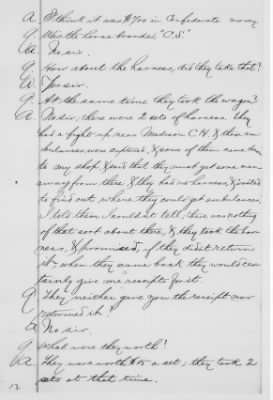 A. I think it was $700 in Confederate money.
Q. Was the horse branded "C.S."
A. No sir.
Q. How about the harness, did they take that?
A. Yes sir.
Q. At the same time they took the wagon?
A. No sir; there were 2 sets of harness. They
had a fight up near Madison C.H. & their am-
bulances were captured, & some of them came down
to my shop & said that they must get some men
away from there & they had no harness, & wanted
to find out where they could get ambulances.
I told them I could not tell; there was nothing
of that sort about there, & they took the har-
ness, & promised, if they did not return
it when they came back they would cer-
tainly give me receipts for it.
Q. They neither gave you the receipt nor
returned it?
A. No sir.
Q. What were they worth?
A. They were worth $15 a set; they took 2
sets at that time.
13.